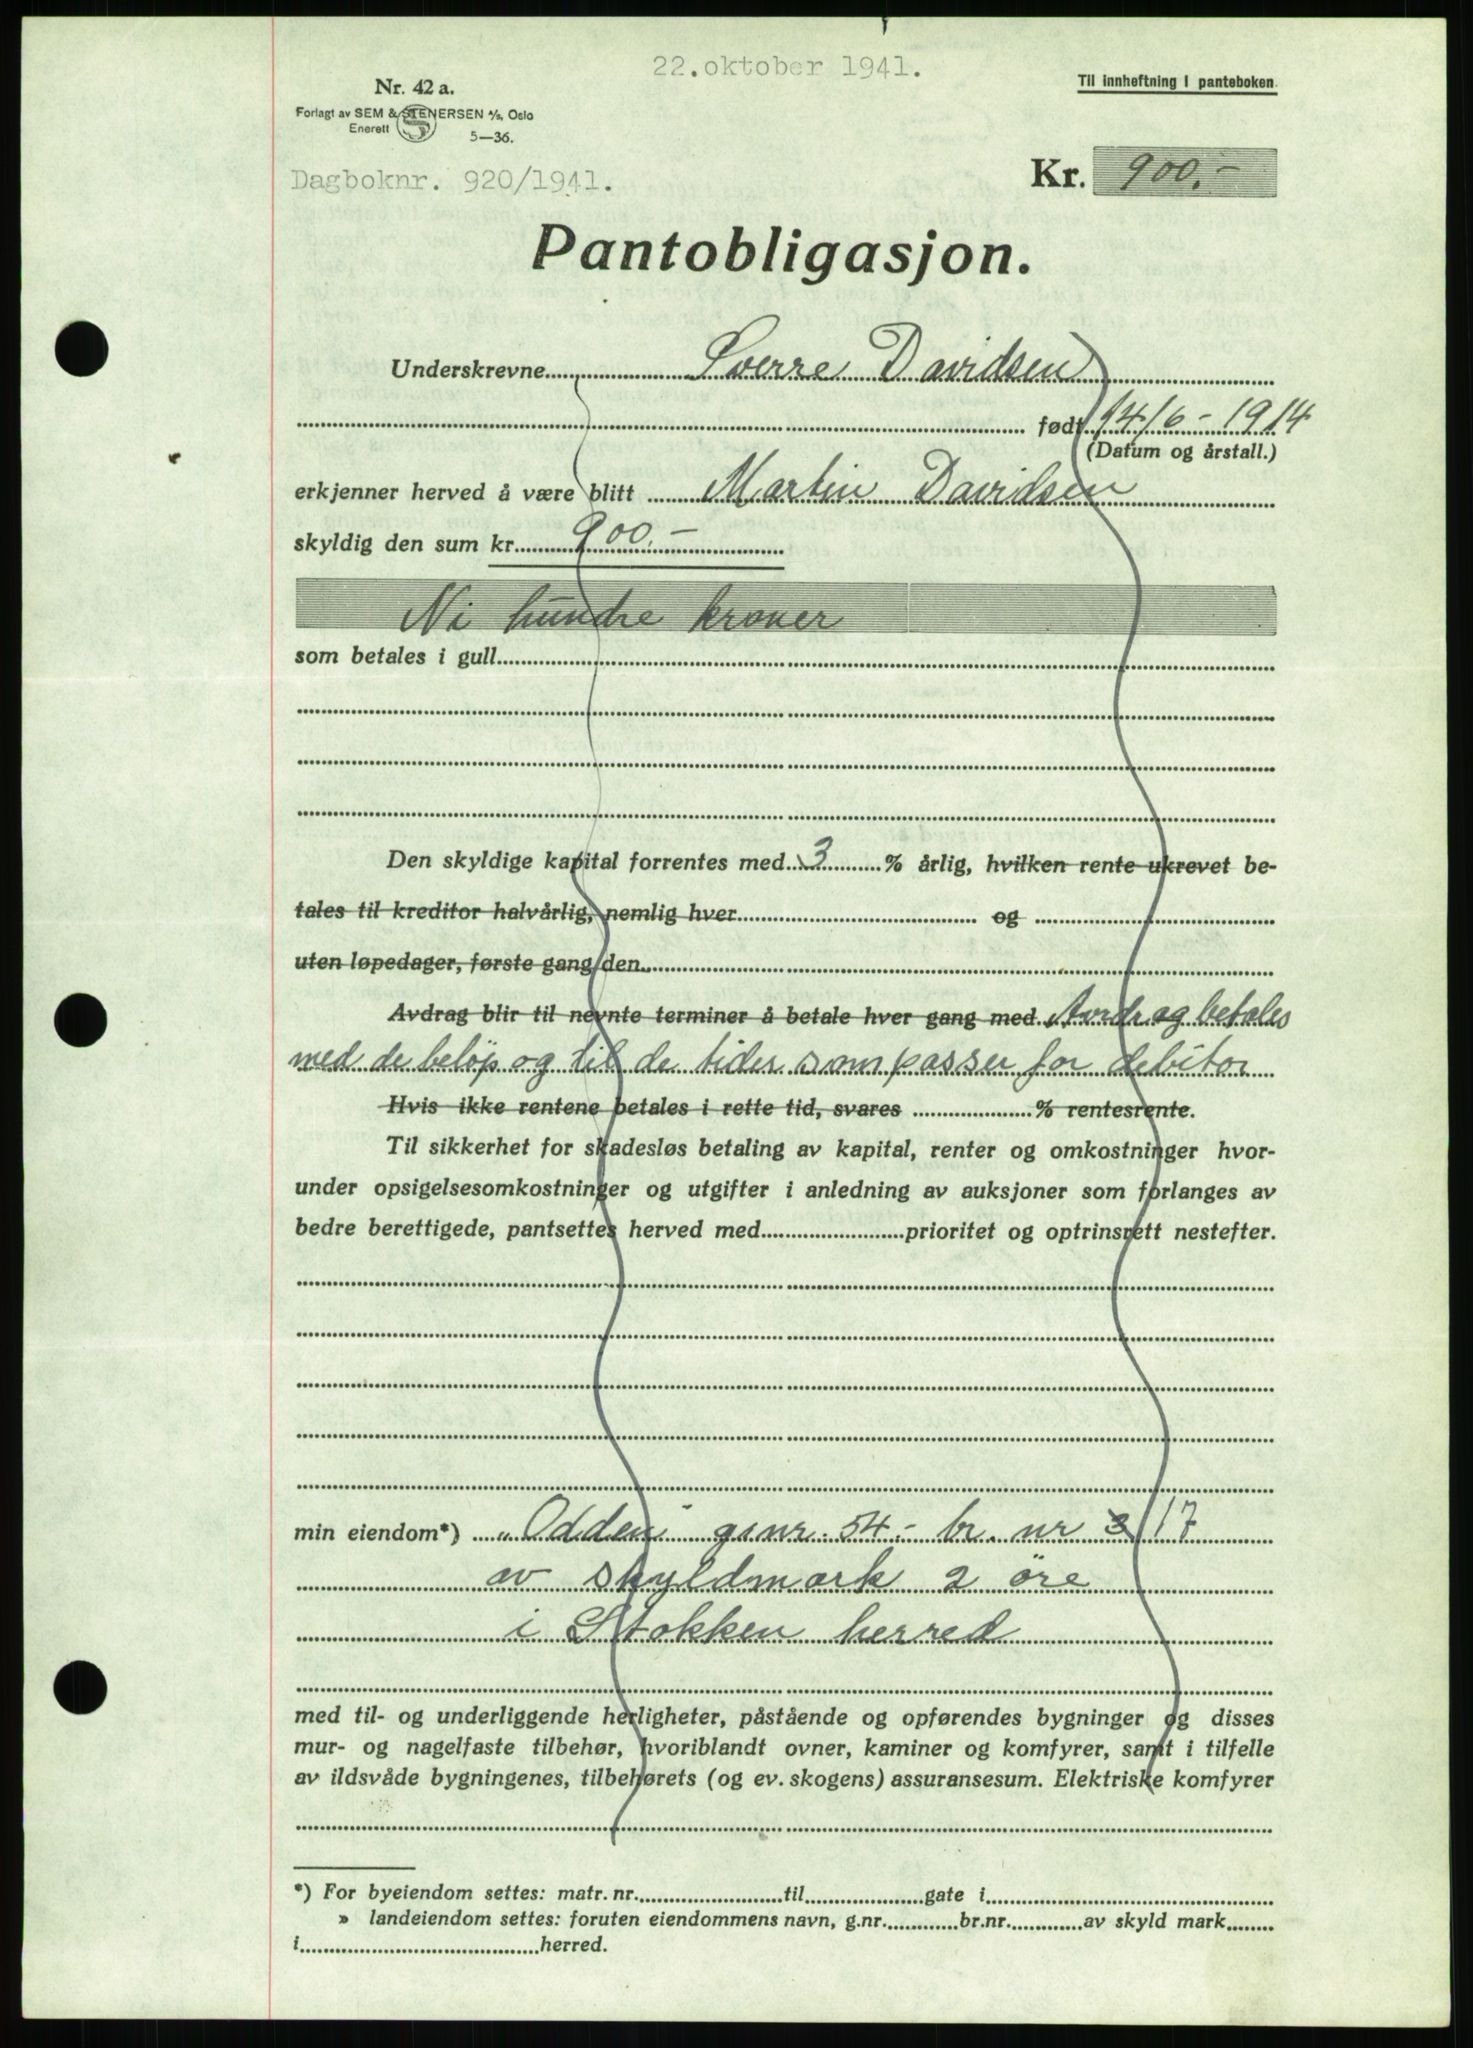 22. oktober 1941.
Nr. 42 a.
Til innheftning i panteboken.
Forlagt av SEM & STENERSEN A/S, Oslo
Enerett
5—36.
Dagboknr. 920/1941.
Kr. 900.-
Pantobligasjon.
Underskrevne Sverre Davidsen
født 14/6-1914
(Datum og årstall.)
erkjenner herved å være blitt Martin Davidsen
skyldig den sum kr. 900.-
Ni hundre kroner
som betales i gull
Den skyldige kapital forrentes med 3 % årlig, hvilken rente ukrevet be-
tales til kreditor halvårlig, nemlig hver og
uten løpedager, første gang den
Avdrag blir til nevnte terminer å betale hver gang med Avdrag betales
med de beløp og til de tider som passer for debitor
Hvis ikke rentene betales i rette tid, svares % rentesrente.
Til sikkerhet for skadesløs betaling av kapital, renter og omkostninger hvor-
under opsigelsesomkostninger og utgifter i anledning av auksjoner som forlanges av
bedre berettigede, pantsettes herved med prioritet og optrinsrett nestefter.
min eiendom*) „Odden" gsnr. 54.- br. nr 3 17
av skyldmark 2 øre
i Stokken herred
med til- og underliggende herligheter, påstående og opførendes bygninger og disses
mur- og nagelfaste tilbehør, hvoriblandt ovner, kaminer og komfyrer, samt i tilfelle
av ildsvåde bygningenes, tilbehørets (og ev. skogens) assuransesum. Elektriske komfyrer
*) For byeiendom settes: matr. nr. til gate i
» landeiendom settes: foruten eiendommens navn, g.nr. br.nr. av skyld mark
i herred.